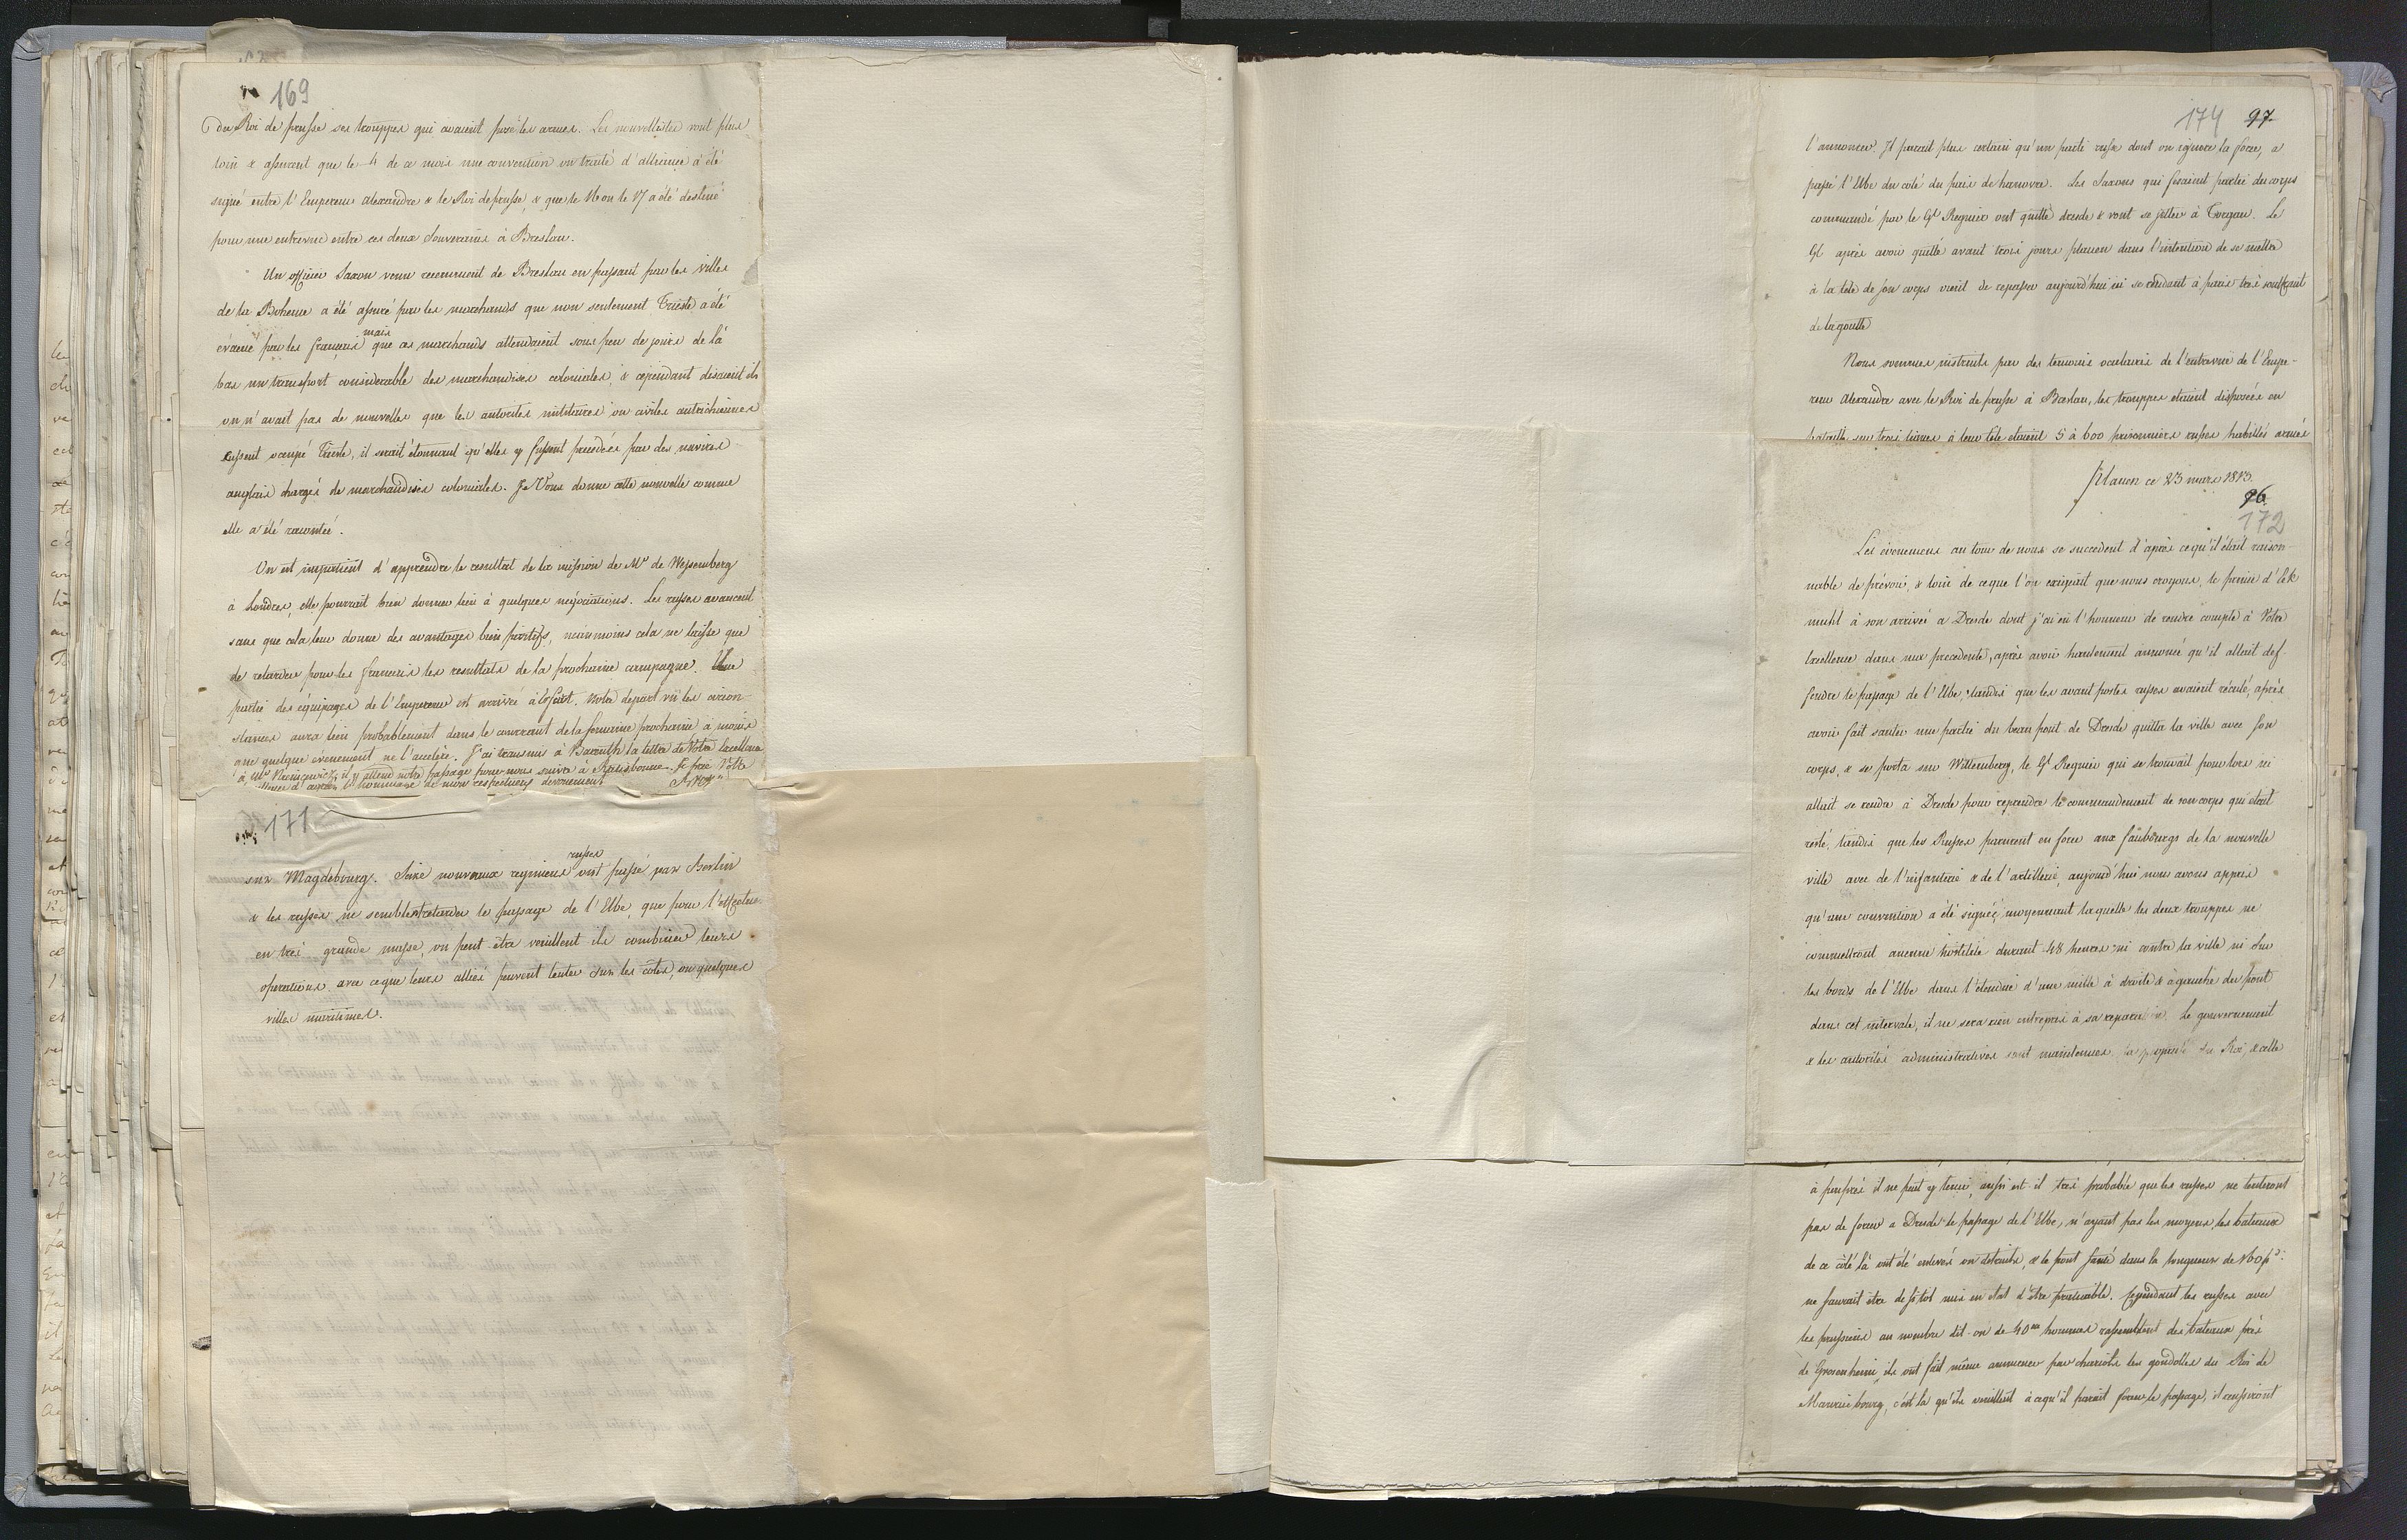 169
du Roi de prusse ses trouppes qui avaient posé les armes. Les nouvellistes vont plus
loin & assurent que le 4 de ce mois une convention ou traité d'alliance a été
signé entre l'Empereur Alexandre & le Roi de prusse, & que le 16 ou le 17 a été destiné
pour une entrevue entre ces deux Souverains à Breslau.
Un officier Saxon venu recemment de Breslau en passant par les villes
de la Boheme a été assuré par les marchands que non seulement Trieste a été
évacué par les français mais que ces marchands attendaient sous peu de jours de là
bas un transport considerable des marchandises coloniales, & cependant disaient ils
on n'avait pas de nouvelles que les autorités militaires ou civiles autrichiennes
eussent occupé Trieste, il serait étonnant qu'elles y fussent precedées par des navires
anglais chargés de marchandises coloniales. Je Vous donne cette nouvelle comme
elle a été racontée.
On est impatient d'apprendre le resultat de la mission de Mr de Wessemberg
à Londres, elle pourrait bien donner lieu à quelques négociations. Les russes avancent
sans que cela leur donne des avantages bien positifs, néanmoins cela ne laisse que
de retarder pour les français les resultats de la prochaine campagne. Une
partie des équipages de l'Empereur est arrivée à Erfurt. Notre depart vû les circon-
stances aura lieu probablement dans le courrant de la semaine prochaine à moins
que quelque évenement ne l'accelère. J'ai transmis à Bareuth la lettre de Votre Excellence
à Mr il y attend notre passage pour nous suivre à Ratisbonne. Je prie Votre
d'agréer l'hommage de mon respectueux devouement
171
sur Magdebourg. Seize nouveaux regimens russes ont passé par Berlin
& les russes ne semblent retarder le passage de l'Elbe, que pour l'effectuer
en très grande masse, ou peut être veuillent ils combiner leurs
operations avec ce que leurs alliés peuvent tenter sur les côtes, ou quelques
villes maritimes.
174 97
l'annoncer. Il parait plus certain qu'un parti russe dont on ignore la force, a
passé l'Elbe du coté du pais de hanovre. Les Saxons qui fesaient partie du corps
commandé par le Gl Regnier ont quitté dresde & vont se jetter à Torgau. Le
Gl après avoir quitté avant trois jours plauen dans l'intention de se mettre
à la tête de son corps vient de repasser aujourd'hui ici se rendant à paris très souffrant
de la goutte
Nous sommes instruits par des temoins oculaires de l'entrevue de l'Empe-
reur Alexandre avec le Roi de prusse à Breslau, les trouppes etaient disposées en
bataille sur trois lignes à leur tête etaient 5 à 600 prisonniers russes habillés armés
Plauen ce 23 mars 1813.
96
172
Les évenemens au tour de nous se succedent d'après ce qu'il était raison-
nable de prévoir, & loin de ce que l'on exigeait que nous croyons, le prince d'Eck
muhl à son arrivée a Dresde dont j'ai eû l'honneur de rendre compte à Votre
Excellence dans ma precedente, après avoir hautement annoncé qu'il allait def-
fendre le passage de l'Elbe, tandis que les avant postes russes avaient réculé, après
avoir fait sauter une partie du beau pont de Dresde quitta la ville avec son
corps, & se porta sur Wittemberg, le Gl Regnier qui se trouvait pour lors ici
allait se rendre à Dresde pour reprendre le commandement de son corps qui etait
resté, tandis que les Russes parurent en force aux faubourgs de la nouvelle
ville avec de l'infanterie & de l'artillerie, aujourd'hui nous avons appris
qu'une convention a été signée, moyennant laquelle les deux trouppes ne
commettront aucune hostilité durant 48 heures ni contre la ville ni sur
les bords de l'Elbe dans l'étendue d'une mille à droite & à gauche du pont
dans cet intervale, il ne sera rien entrepris à sa reparation. Le gouvernement
& les autorités administratives sont maintenues, la propriété du Roi & celle
à peuprès il ne peut y tenir, aussi est-il très probable que les russes ne tenteront
pas de forcer a Dresde le passage de l'Elbe, n'ayant pas les moyens, les bateaux
de ce côté là ont été enlevés ou detruits, & le pont sauté dans la longueur de 160 pds
ne saurait être de sitôt mis en état d'être praticable. Cependant les russes avec
les prussiens au nombre dit-on de 40m hommes rassemblent des bateaux près
de Grosenhein, ils ont fait même ammener par chariots les gondolles du Roi de
Mauricebourg, c'est là qu'ils veuillent à ce qu'il parait forcer le passage, il reussiront